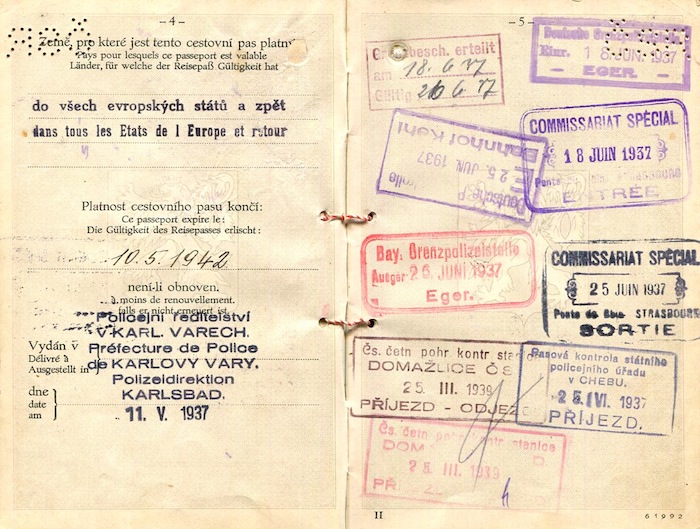 — 4 —
Země, pro které jest tento cestovní pas platný
Pays pour lesquels ce passeport est valable
Länder, für welche der Reisepaß Gültigkeit hat
do všech evropských států a zpět
dans tous les Etats de l Europe et retour
Platnost cestovního pasu končí:
Ce passeport expire le:
Die Gültigkeit des Reisepasses erlischt:
10.5.1942
není-li obnoven.
à moins de renouvellement.
falls er nicht erneuert ist.
Policejní ředitelství
v KARL. VARECH.
Préfecture de Police
de KARLOVY VARY.
Polizeidirektion
KARLSBAD.
11. V. 1937
Vydán v
Délivré à
Ausgestellt in
dne
date
am
— 5 —
besch. erteilt
am 18.6.37
Gültig 26 6 37
Deutsche
18 JUN. 1937
— EGER. —
Bahnhof Kehl
25. JUN. 1937
Deutsche P
COMMISSARIAT SPÉCIAL
18 JUIN 1937
Ponts STRASBOURG
ENTRÉE
Bay. Grenzpolizeistelle
26 JUNI 1937
Eger.
COMMISSARIAT SPÉCIAL
25 JUIN 1937
Ponts de Rhin STRASBOURG
SORTIE
Čs. četn pohr. kontr stanice
DOMAŽLICE ČS
25. III. 1939
PŘÍJEZD - ODJEZD
Pasová kontrola státního
policejního úřadu
v CHEBU.
VI. 1937
PŘÍJEZD.
Čs. četn pohr kontr stanice
DOM
25 III. 1939
PŘÍ
II
61992